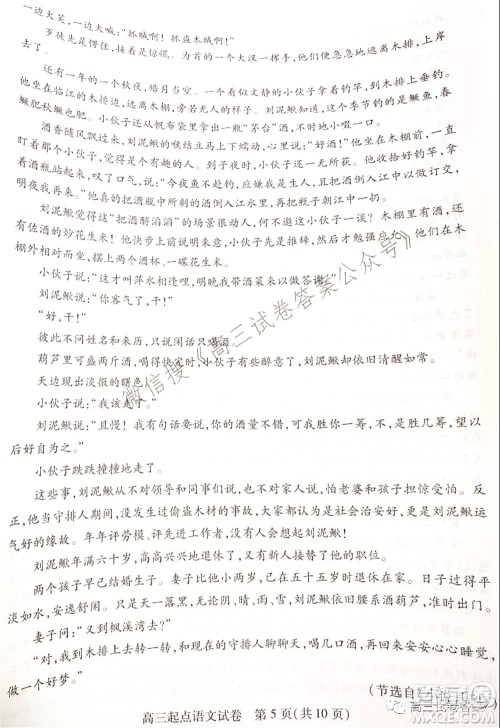 一边大笑，一边大喊：“抓贼啊！抓盗木贼啊！”
歹徒先是愣住，接着是惊慌。为首的一个大汉一挥手，他们便急急地逃离木排，上岸
去了。
还有一年的一个秋夜，皓月当空。一个看似文静的小伙子拿着钓竿，到木排上垂钓。
他坐在临江的木排边，远离木棚，旁若无人的样子。刘泥鳅知道，这个季节钓的是鳜鱼，春
鳜肥秋鳜也肥。小伙子还从帆布袋里拿出一瓶“茅台”酒，不时地小啜一口。
酒香随风飘过来，刘泥鳅的喉结立马上下蠕动，心里说：“好酒！”他坐在木棚前，一直
盯着那个小伙子，觉得是个有趣的人。到子夜时，小伙子还一无所获。他收拾好钓竿，拿
着酒瓶站起来，叹了口气，说：“今夜鱼不赴钓，应嫌我是生人，且把酒倒入江中以做订交，
明夜我再来。”他真的把酒瓶中所剩的酒倒入江水里，再把瓶子朝江中一扔。
刘泥鳅觉得这“把酒酹滔滔”的场景很动人，何不邀这小伙子一谈？木棚里有酒，还
有佐酒的炒花生米！他快步上前说明来意，小伙子先是推辞，然后才勉强应允。他们在木
棚外相对而坐，摆上两个酒杯、一碟花生米。
小伙子说：“这才叫萍水相逢哩，明晚我带酒菜来以做答谢。”
刘泥鳅说：“你客气了，干！”
“好，干！”
彼此不问姓名和来历，只说闲话只喝酒。
葫芦里可盛两斤酒，喝得快底了，小伙子有些醉意了，刘泥鳅却依旧清醒如常。
天边现出淡微的曙色。
小伙子说：“我该走了。”
刘泥鳅说：“且慢！我有句话要说，你的酒量不错，可我胜你一筹，不，是胜几筹，望以
后好自为之。”
小伙子跌跌撞撞地走了。
这些事，刘泥鳅从不对领导和同事们说，也不对家人说，怕老婆和孩子担惊受怕。反
正，他当守排人期间，没发生过偷盗木材的事故，大家都认为是社会治安好，更是刘泥鳅运
气好的缘故。年年评劳模、评先进工作者，没有人会想起刘泥鳅！
刘泥鳅年满六十岁，高高兴兴地退休了，又有新人接替了他的职位。
两个孩子早已结婚生子。妻子比他小两岁，已在五十五岁时退休在家。日子过得平
淡如水，安逸舒闲。只是天一落黑，无论阴、晴、雨、雪，刘泥鳅依旧腰系酒葫芦，准时出门。
妻子问：“又到枫溪湾去？”
“对，我到木排上去转一转，和现在的守排人聊聊天，喝几口酒，再回来安安心心睡觉，
做一个好梦。”
（节选自
高三起点语文试卷　第 5 页（共 10 页）
微信搜《高三试卷答案公众号》
高三试卷答案